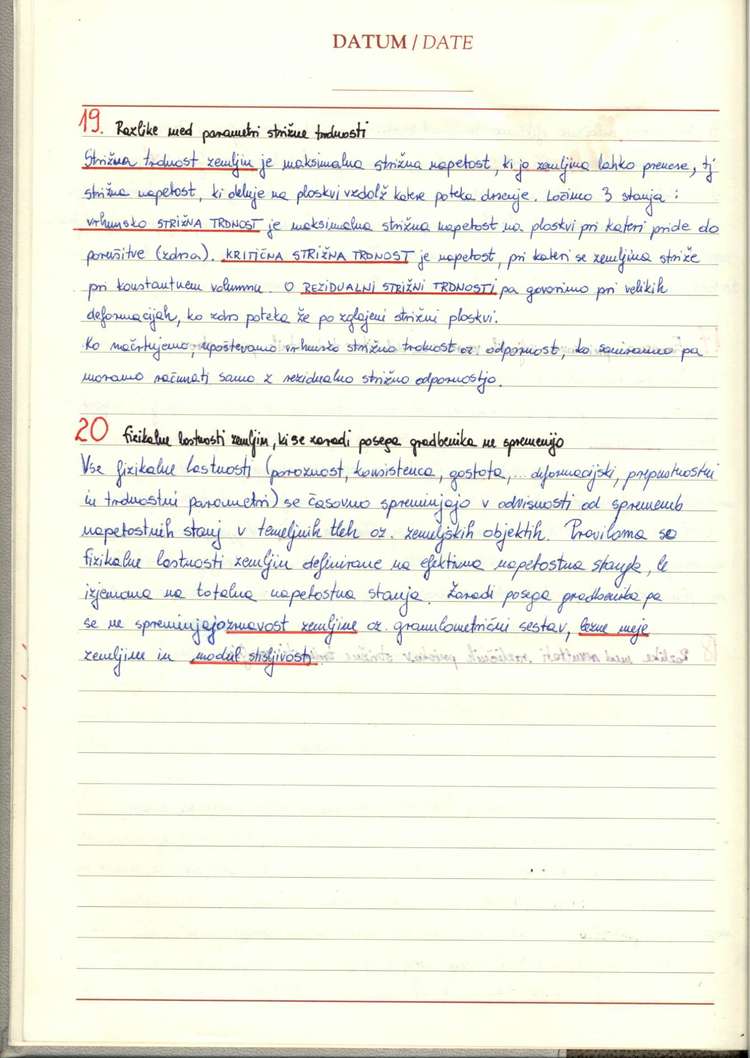 DATUM / DATE
19. Razlike med parametri strižne trdnosti
Strižna trdnost zemljin je maksimalna strižna napetost, ki jo zemljina lahko prenese, tj
strižna napetost, ki deluje na ploskvi vzdolž katere poteka drsenje. Ločimo 3 stanja :
vrhunsko STRIŽNA TRDNOST je maksimalna strižna napetost na ploskvi pri kateri pride do
porušitve (zdrsa). KRITIČNA STRIŽNA TRDNOST je napetost, pri kateri se zemljina striže
pri konstantnem volumnu. O REZIDUALNI STRIŽNI TRDNOSTI pa govorimo pri velikih
deformacijah, ko zdrs poteka že po zglajeni strižni ploskvi.
Ko načrtujemo, upoštevamo vrhunsko strižno trdnost oz. odpornost, ko saniramo pa
moramo računati samo z rezidualno strižno odpornostjo.
20 fizikalne lastnosti zemljin, ki se zaradi posega gradbenika ne spremenijo
Vse fizikalne lastnosti (poroznost, konsistenca, gostota, ... deformacijski, prepustnostni
in trdnostni parametri) se časovno spreminjajo v odvisnosti od sprememb
napetostnih stanj v temeljnih tleh oz. zemeljskih objektih. Praviloma so
fizikalne lastnosti zemljin definirane na efektivna napetostna stanja, le
izjemoma na totalna napetostna stanja. Zaradi posega gradbenika pa
se ne spreminjajo zrnavost zemljine oz. granulometrični sestav, lezne meje
zemljine in modul stisljivosti.